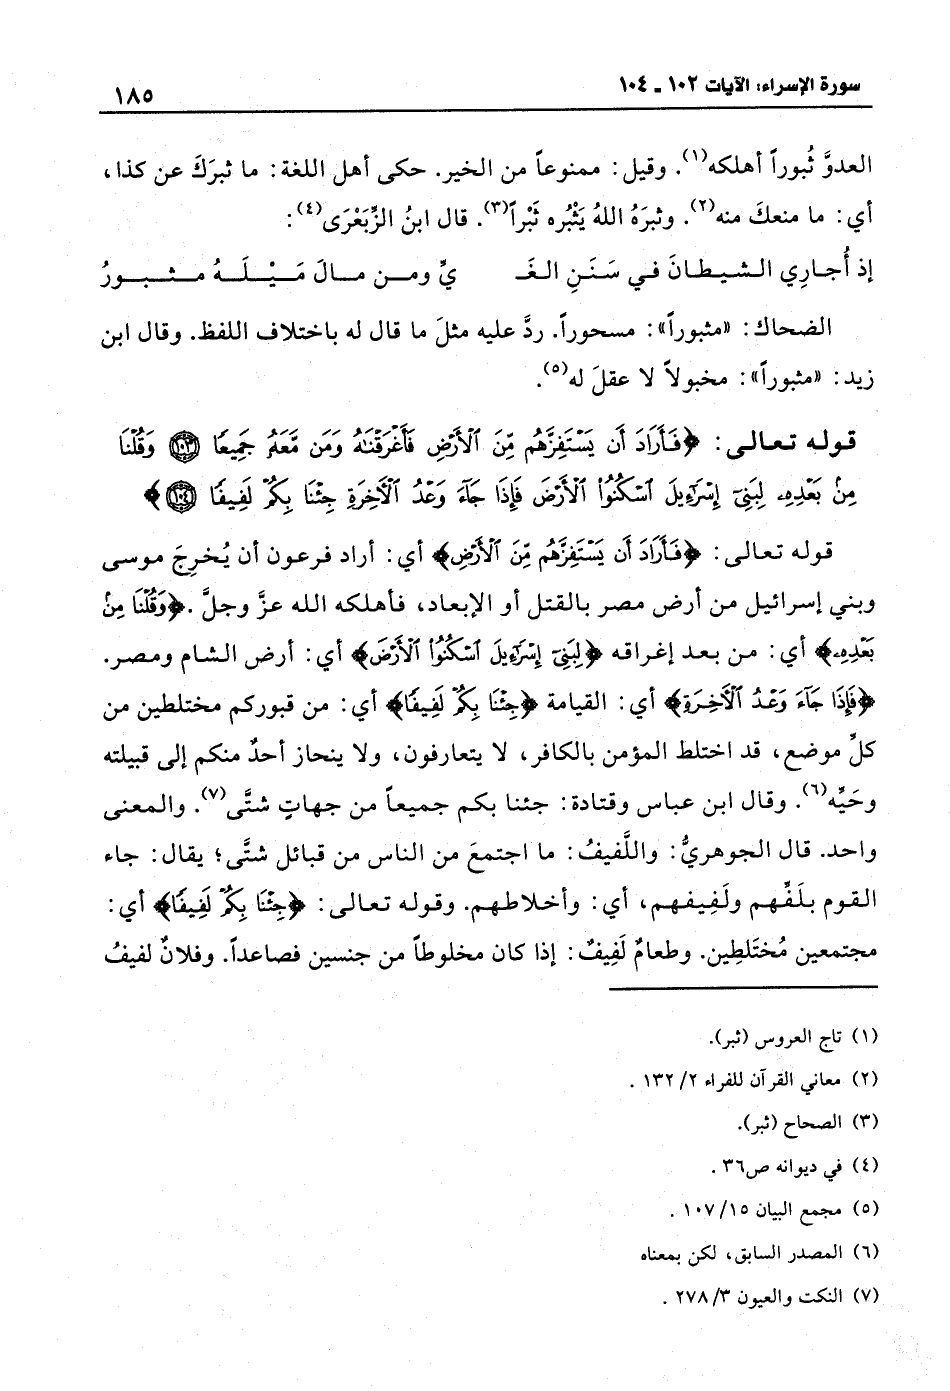 سورة الإسراء: الآيات ١٠٢ - ١٠٤
١٨٥
العدوَّ ثُبوراً أهلكه(١). وقيل: ممنوعاً من الخير. حكى أهل اللغة: ما ثبرَكَ عن كذا،
أي: ما منعكَ منه(٢). وثبرَهُ اللهُ يَثْبُره ثَبْراً(٣). قال ابنُ الزِّبَعْرَى(٤):
إذ أُجـاري الـشيطـانَ فـي سَنَنِ الـغَـ يِّ ومـن مـالَ مَـيْـلَـهُ مـثـبـورُ
الضحاك: «مثبوراً»: مسحوراً. ردَّ عليه مثلَ ما قال له باختلاف اللفظ. وقال ابن
زيد: «مثبوراً»: مخبولاً لا عقلَ له(٥).
قوله تعالى: ﴿فَأَرَادَ أَن يَسْتَفِزَّهُم مِّنَ ٱلْأَرْضِ فَأَغْرَقْنَٰهُ وَمَن مَّعَهُۥ جَمِيعًا ١٠٣ وَقُلْنَا
مِنۢ بَعْدِهِۦ لِبَنِىٓ إِسْرَٰٓءِيلَ ٱسْكُنُوا۟ ٱلْأَرْضَ فَإِذَا جَآءَ وَعْدُ ٱلْأَخِرَةِ جِئْنَا بِكُمْ لَفِيفًا ١٠٤﴾
قوله تعالى: ﴿فَأَرَادَ أَن يَسْتَفِزَّهُم مِّنَ ٱلْأَرْضِ﴾ أي: أراد فرعون أن يُخرِجَ موسى
وبني إسرائيل من أرض مصر بالقتل أو الإبعاد، فأهلكه الله عزَّ وجلَّ. ﴿وَقُلْنَا مِنۢ
بَعْدِهِۦ﴾ أي: من بعد إغراقه ﴿لِبَنِىٓ إِسْرَٰٓءِيلَ ٱسْكُنُوا۟ ٱلْأَرْضَ﴾ أي: أرض الشام ومصر.
﴿فَإِذَا جَآءَ وَعْدُ ٱلْأَخِرَةِ﴾ أي: القيامة ﴿جِئْنَا بِكُمْ لَفِيفًا﴾ أي: من قبوركم مختلطين من
كلِّ موضع، قد اختلط المؤمن بالكافر، لا يتعارفون، ولا ينحاز أحدٌ منكم إلى قبيلته
وحَيِّه(٦). وقال ابن عباس وقتادة: جئنا بكم جميعاً من جهاتٍ شتَّى(٧). والمعنى
واحد. قال الجوهريُّ: واللَّفيفُ: ما اجتمعَ من الناس من قبائل شتَّى؛ يقال: جاء
القوم بلَفِّهم ولَفِيفهم، أي: وأخلاطهم. وقوله تعالى: ﴿جِئْنَا بِكُمْ لَفِيفًا﴾ أي:
مجتمعين مُختَلطِين. وطعامٌ لَفِيفٌ: إذا كان مخلوطاً من جنسين فصاعداً. وفلانٌ لفيفُ
(١) تاج العروس (ثبر).
(٢) معاني القرآن للفراء ١٣٢/٢ .
(٣) الصحاح (ثبر).
(٤) في ديوانه ص٣٦ .
(٥) مجمع البيان ١٠٧/١٥ .
(٦) المصدر السابق، لكن بمعناه
(٧) النكت والعيون ٢٧٨/٣ .